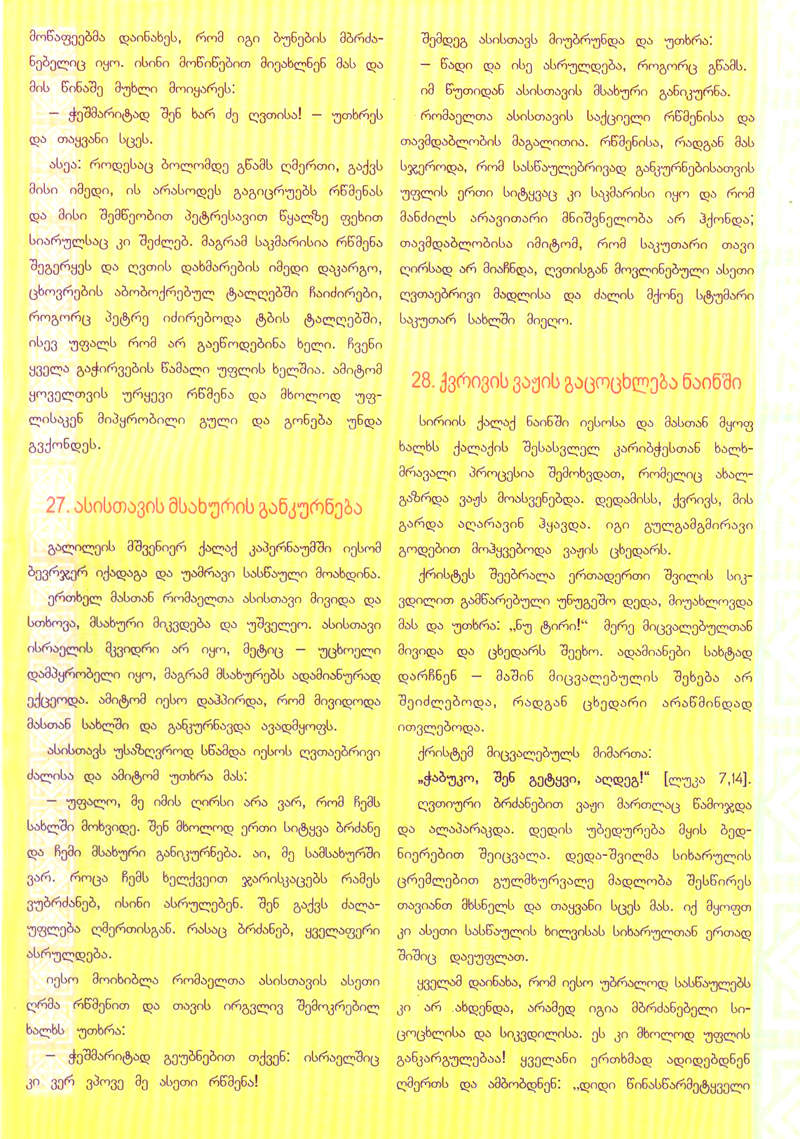 მოწაფეებმა დაინახეს, რომ იგი ბუნების მბრძა-
ნებელიც იყო. ისინი მოწიწებით მიეახლნენ მას და
მის წინაშე მუხლი მოიყარეს:
– ჭეშმარიტად შენ ხარ ძე ღვთისა! – უთხრეს
და თაყვანი სცეს.
ასეა: როდესაც ბოლომდე გწამს ღმერთი, გაქვს
მისი იმედი, ის არასოდეს გაგიცრუებს რწმენას
და მისი შემწეობით პეტრესავით წყალზე ფეხით
სიარულსაც კი შეძლებ. მაგრამ საკმარისია რწმენა
შეგერყეს და ღვთის დახმარების იმედი დაკარგო,
ცხოვრების აბობოქრებულ ტალღებში ჩაიძირები,
როგორც პეტრე იძირებოდა ტბის ტალღებში,
ისევ უფალს რომ არ გაეწოდებინა ხელი. ჩვენი
ყველა გაჭირვების წამალი უფლის ხელშია. ამიტომ
ყოველთვის ურყევი რწმენა და მხოლოდ უფ-
ლისაკენ მიპყრობილი გული და გონება უნდა
გვქონდეს.
27. ასისთავის მსახურის განკურნება
გალილეის მშვენიერ ქალაქ კაპერნაუმში იესომ
ბევრჯერ იქადაგა და უამრავი სასწაული მოახდინა.
ერთხელ მასთან რომაელთა ასისთავი მივიდა და
სთხოვა, მსახური მიკვდება და უშველეო. ასისთავი
ისრაელის მკვიდრი არ იყო, მეტიც – უცხოელი
დამპყრობელი იყო, მაგრამ მსახურებს ადამიანურად
ექცეოდა. ამიტომ იესო დაჰპირდა, რომ მივიდოდა
მასთან სახლში და განკურნავდა ავადმყოფს.
ასისთავს უსაზღვროდ სწამდა იესოს ღვთაებრივი
ძალისა და ამიტომ უთხრა მას:
– უფალო, მე იმის ღირსი არა ვარ, რომ ჩემს
სახლში მოხვიდე. შენ მხოლოდ ერთი სიტყვა ბრძანე
და ჩემი მსახური განიკურნება. აი, მე სამსახურში
ვარ. როცა ჩემს ხელქვეით ჯარისკაცებს რამეს
ვუბრძანებ, ისინი ასრულებენ. შენ გაქვს ძალა-
უფლება ღმერთისგან. რასაც ბრძანებ, ყველაფერი
ასრულდება.
იესო მოიხიბლა რომაელთა ასისთავის ასეთი
ღრმა რწმენით და თავის ირგვლივ შემოკრებილ
ხალხს უთხრა:
– ჭეშმარიტად გეუბნებით თქვენ: ისრაელშიც
კი ვერ ვპოვე მე ასეთი რწმენა!
შემდეგ ასისთავს მიუბრუნდა და უთხრა:
– წადი და ისე ასრულდება, როგორც გწამს.
იმ წუთიდან ასისთავის მსახური განიკურნა.
რომაელთა ასისთავის საქციელი რწმენისა და
თავმდაბლობის მაგალითია. რწმენისა, რადგან მას
სჯეროდა, რომ სასწაულებრივად განკურნებისათვის
უფლის ერთი სიტყვაც კი საკმარისი იყო და რომ
მანძილს არავითარი მნიშვნელობა არ ჰქონდა;
თავმდაბლობისა იმიტომ, რომ საკუთარი თავი
ღირსად არ მიაჩნდა, ღვთისგან მოვლინებული ასეთი
ღვთაებრივი მადლისა და ძალის მქონე სტუმარი
საკუთარ სახლში მიეღო.
28. ქვრივის ვაჟის გაცოცხლება ნაინში
სირიის ქალაქ ნაინში იესოსა და მასთან მყოფ
ხალხს ქალაქის შესასვლელ კარიბჭესთან ხალხ-
მრავალი პროცესია შემოხვდათ, რომელიც ახალ-
გაზრდა ვაჟს მოასვენებდა. დედამისს, ქვრივს, მის
გარდა აღარავინ ჰყავდა. იგი გულგამგმირავი
გოდებით მოჰყვებოდა ვაჟის ცხედარს.
ქრისტეს შეებრალა ერთადერთი შვილის სიკ-
ვდილით გამწარებული უნუგეშო დედა, მიუახლოვდა
მას და უთხრა: „ნუ ტირი!“ მერე მიცვალებულთან
მივიდა და ცხედარს შეეხო. ადამიანები სახტად
დარჩნენ – მაშინ მიცვალებულის შეხება არ
შეიძლებოდა, რადგან ცხედარი არაწმინდად
ითვლებოდა.
ქრისტემ მიცვალებულს მიმართა:
„ჭაბუკო, შენ გეტყვი, აღდეგ!“ [ლუკა 7,14].
ღვთიური ბრძანებით ვაჟი მართლაც წამოჯდა
და ალაპარაკდა. დედის უბედურება მყის ბედ-
ნიერებით შეიცვალა. დედა-შვილმა სიხარულის
ცრემლებით გულმხურვალე მადლობა შესწირეს
თავიანთ მხსნელს და თაყვანი სცეს მას. იქ მყოფთ
კი ასეთი სასწაულის ხილვისას სიხარულთან ერთად
შიშიც დაეუფლათ.
ყველამ დაინახა, რომ იესო უბრალოდ სასწაულებს
კი არ ახდენდა, არამედ იგია მბრძანებელი სი-
ცოცხლისა და სიკვდილისა. ეს კი მხოლოდ უფლის
განკარგულებაა! ყველანი ერთხმად ადიდებდნენ
ღმერთს და ამბობდნენ: „დიდი წინასწარმეტყველი